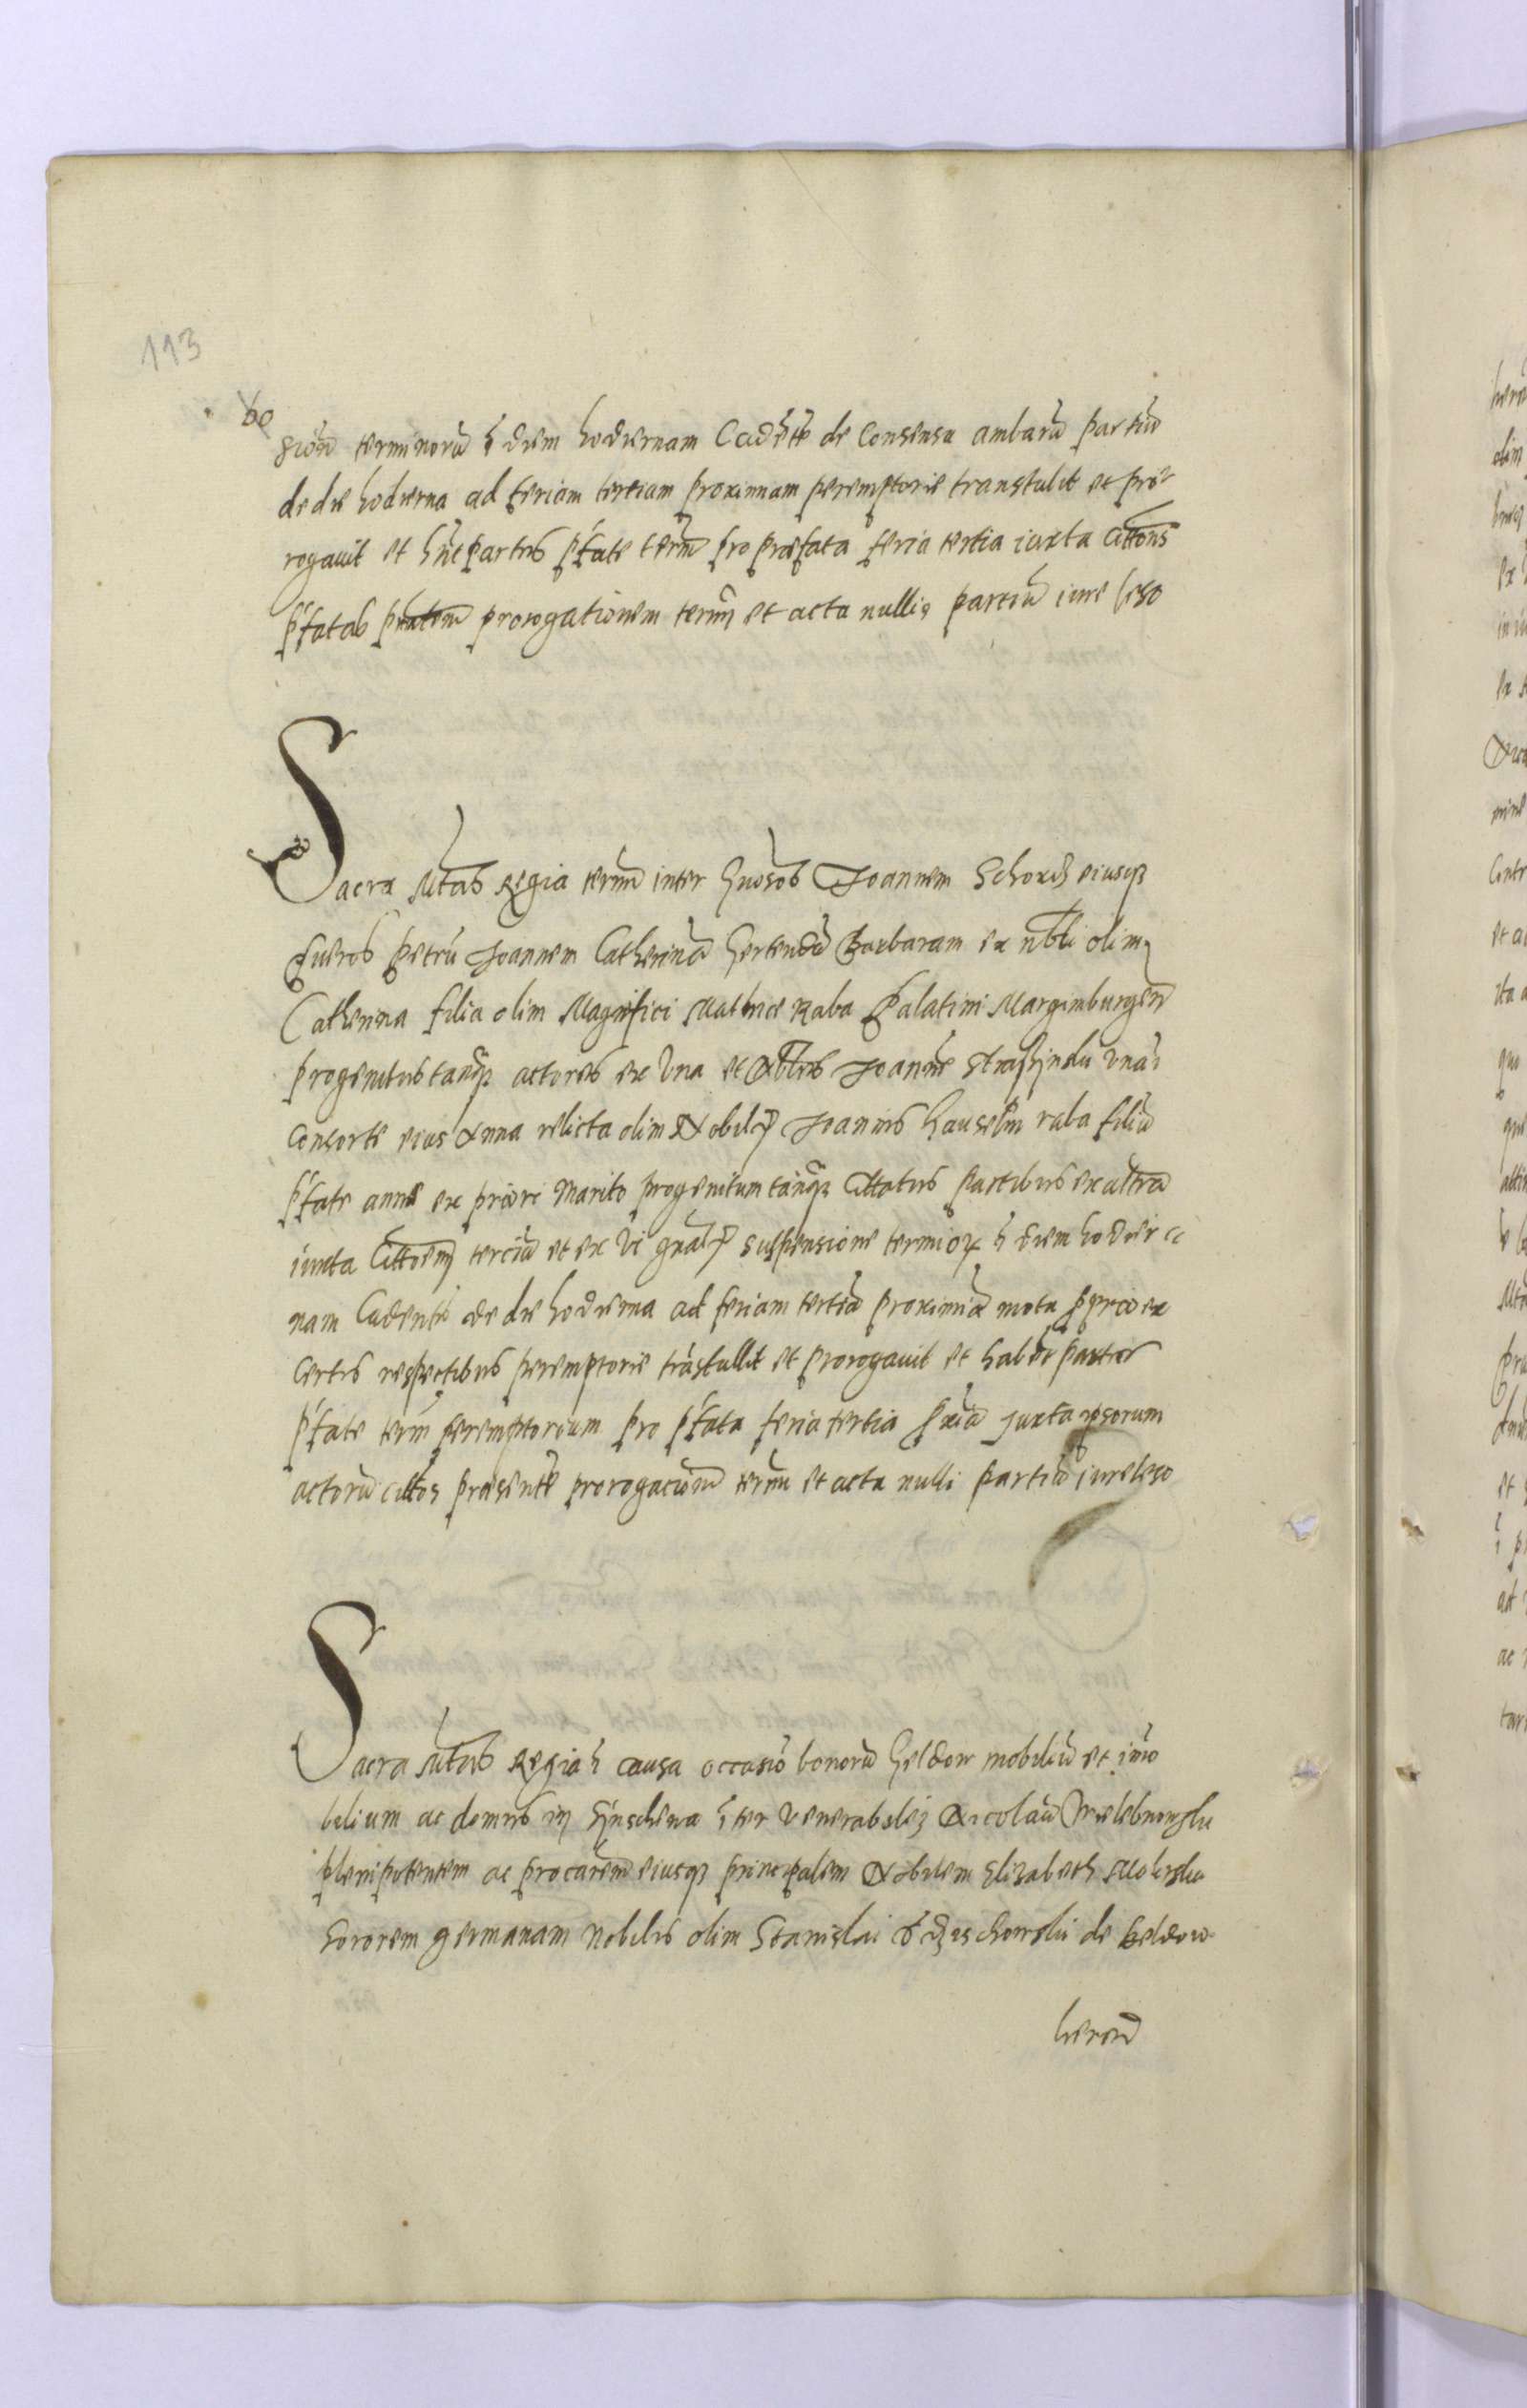 113
60
sionem terminorū ī diem hodiernam Cadētē de Consensu ambarū partiū
de die hodierna ad feriam tertiam proximam peremptorie transtulit et pro-
rogavit et hn̄t partes p̄fate term̄ pro præfata feria tertia iuxta Citt̄ons
p̄fatas prorogationem term̄ et acta nullis partiū iure leso
Sacra Mt̄as Regia term̄ inter Joannem eiusq
pueros Petrū Joannem Catherinā Gertrudā Barbaram ex nobli olim
Catherina filia olim Magnifici Mathie Raba Palatini Margimburgen̄
progenitus tanq̄ actores ex Una et Nobiles Joannē una
Consorte eius Anna relicta olim Nobilis Joannis raba filiū
p̄fate anne ex priori Marito progenitum tanq̄ Cittatus partibus ex altra
iuxta Citt̄oem terciā et ex Vi gnālis suspensione termiorum ī diem hodier=
nam Cadentē de die hodierna ad feriam tertiā proximā motu p̄prio ex
Certis respectibus peremptorie trāstullit et prorogavit et habēt partes
p̄fate term̄ peremptorium pro p̄fata feria tertia p̄xiā juxta ipsorum
actorū citt̄os præsentē prorogacionē term̄ et acta nulli partiū iure leso
Sacra Mt̄as Regia ī causa occasiō bonorū Geldow mobiliū et imo
bilium ac domus in īter Venerabilem Nicolaū
plenipotentem ac procurem̄ eiusq principalem Nobilem Elizabeth
Sororem germanam Nobilis olim Stanislai de Geldow
hered̄